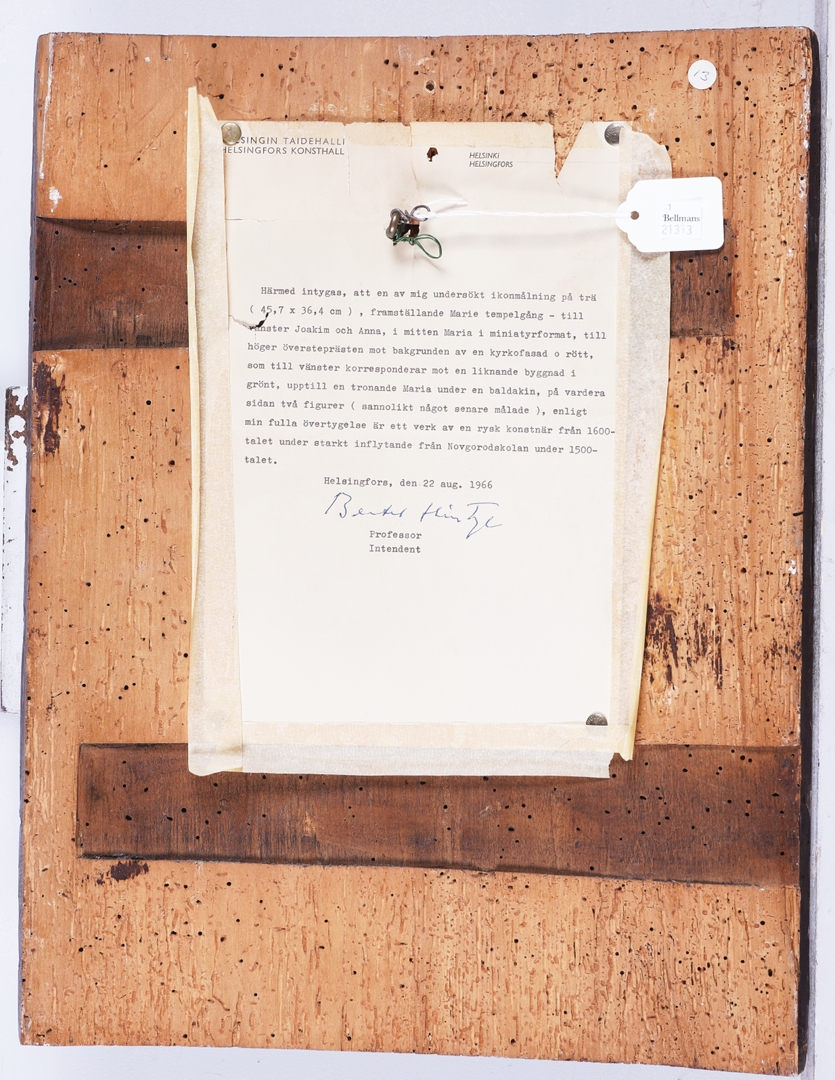 13
HELSINGIN TAIDEHALLI
HELSINGFORS KONSTHALL
HELSINKI
HELSINGFORS
1
Bellmans
21313
Härmed intygas, att en av mig undersökt ikonmålning på trä
( 45,7 x 36,4 cm ) , framställande Marie tempelgång - till
vänster Joakim och Anna, i mitten Maria i miniatyrformat, till
höger översteprästen mot bakgrunden av en kyrkofasad o rött,
som till vänster korresponderar mot en liknande byggnad i
grönt, upptill en tronande Maria under en baldakin, på vardera
sidan två figurer ( sannolikt något senare målade ), enligt
min fulla övertygelse är ett verk av en rysk konstnär från 1600-
talet under starkt inflytande från Novgorodskolan under 1500-
talet.
Helsingfors, den 22 aug. 1966
Bertel Hintze
Professor
Intendent